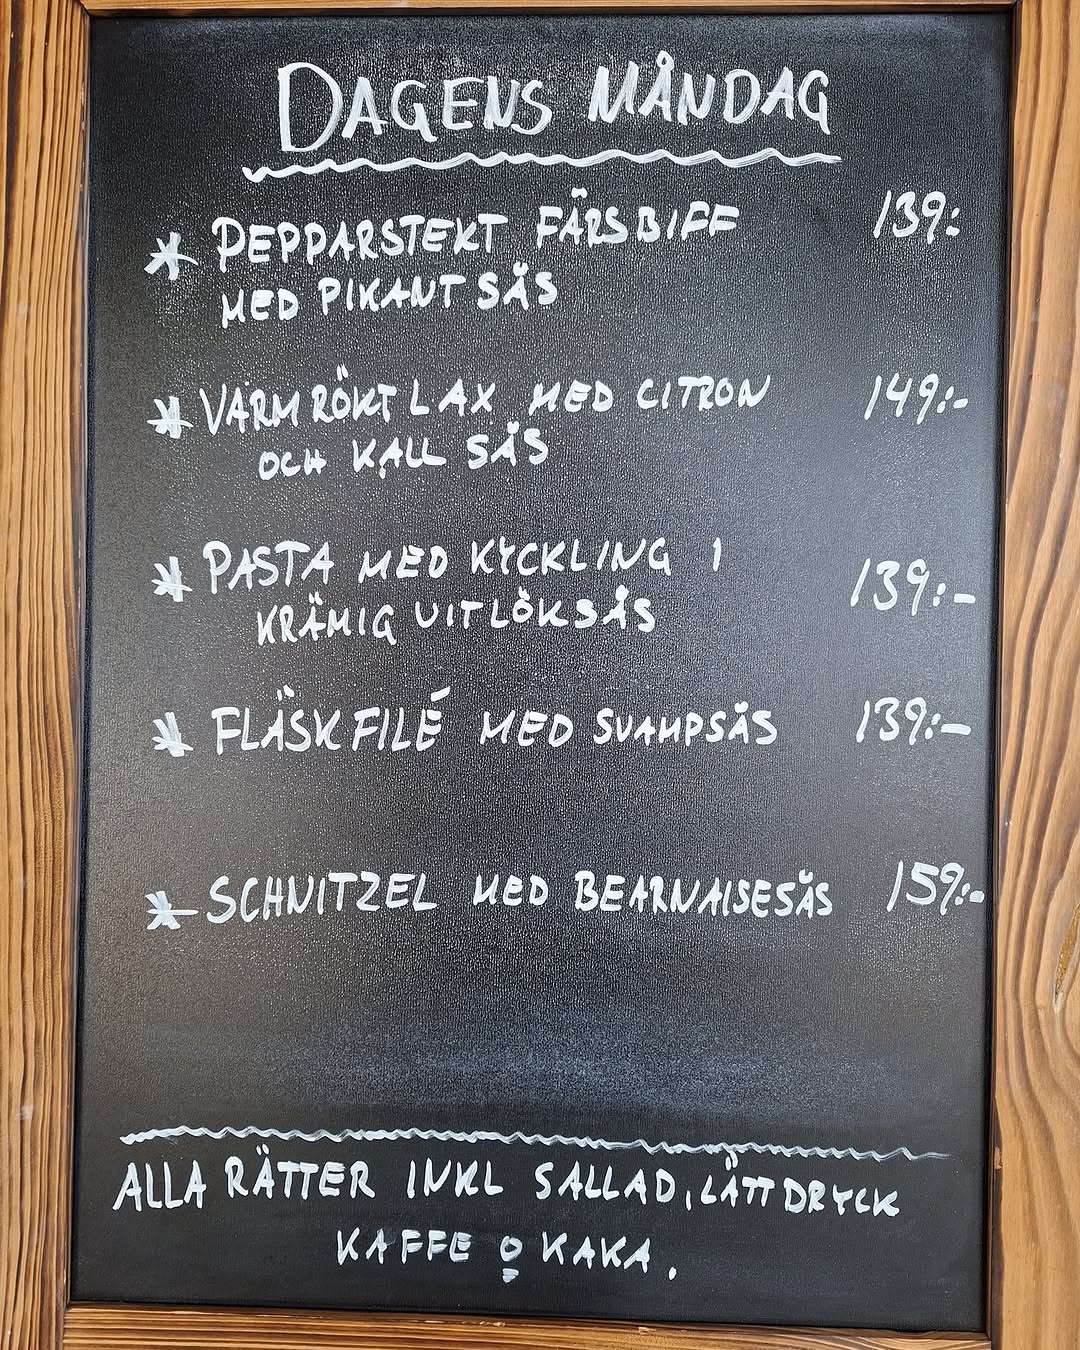 DAGENS MÅNDAG
* PEPPARSTEKT FÄRSBIFF 139:
MED PIKANT SÅS
* VARMRÖKT LAX MED CITRON 149:-
OCH KALL SÅS
* PASTA MED KYCKLING I
KRÄMIG VITLÖKSÅS 139:-
* FLÄSKFILÉ MED SVAMPSÅS 139:-
* SCHNITZEL MED BEARNAISESÅS 159:-
ALLA RÄTTER INKL SALLAD, LÄTTDRYCK
KAFFE o KAKA.